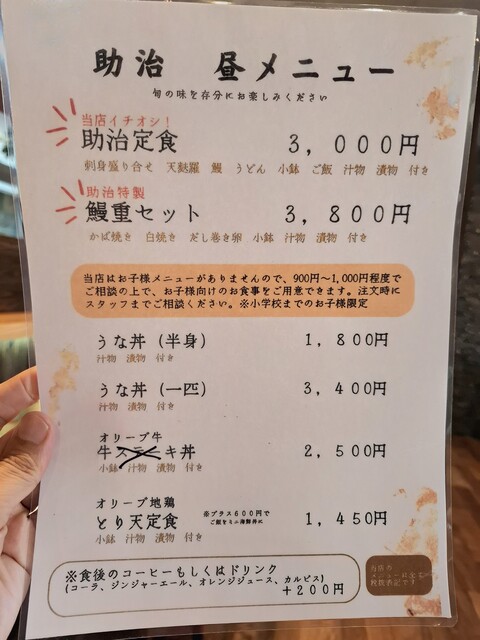 助治 昼メニュー
旬の味を存分にお楽しみください
当店イチオシ!
助治定食 3,000円
刺身盛り合せ 天麩羅 鰻 うどん 小鉢 ご飯 汁物 漬物 付き
助治特製
鰻重セット 3,800円
かば焼き 白焼き だし巻き卵 小鉢 汁物 漬物 付き
当店はお子様メニューがありませんので、900円〜1,000円程度で
ご相談の上で、お子様向けのお食事をご用意できます。注文時に
スタッフまでご相談ください。※小学校までのお子様限定
うな丼(半身) 1,800円
汁物 漬物 付き
うな丼(一匹) 3,400円
汁物 漬物 付き
オリーブ牛
牛ステーキ丼 2,500円
小鉢 汁物 漬物 付き
オリーブ地鶏
とり天定食 ※プラス600円で 1,450円
ご飯をミニ海鮮丼に
小鉢 汁物 漬物 付き
※食後のコーヒーもしくはドリンク
(コーラ、ジンジャーエール、オレンジジュース、カルピス)
+200円
当店の
メニューは全て
税抜表記です